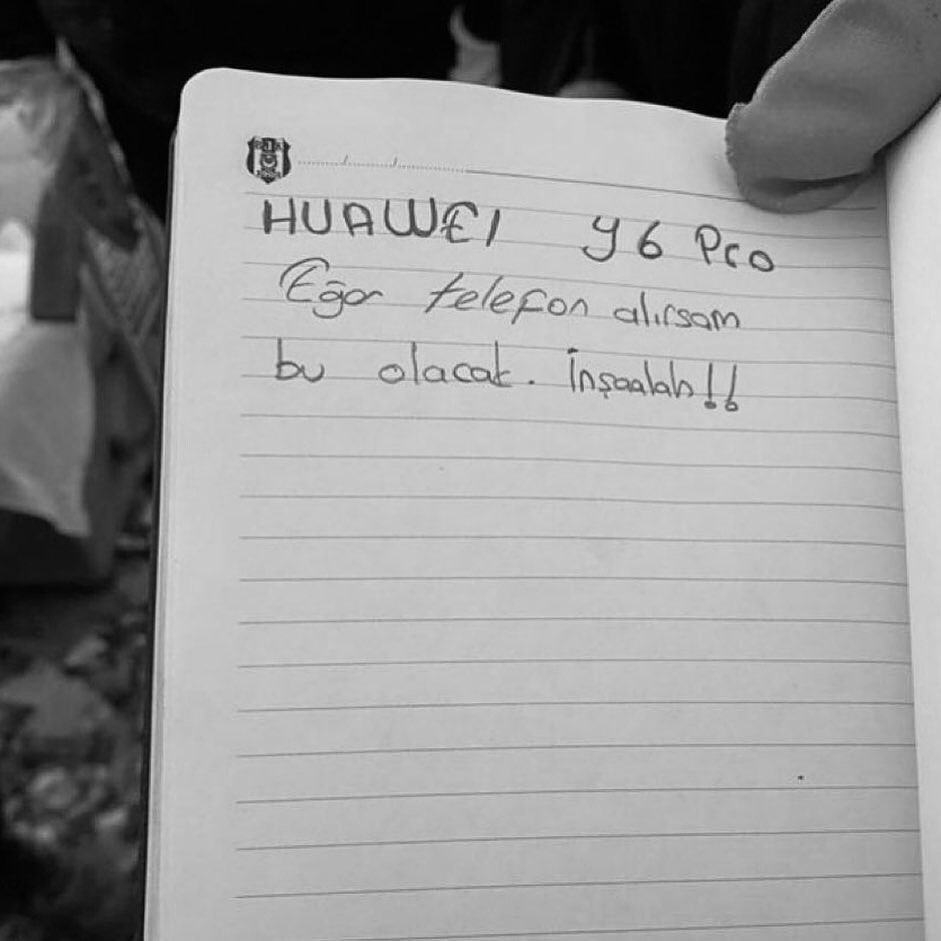 HUAWEI y6 Pro
Eğer telefon alırsam
bu olacak. İnşaalah!!